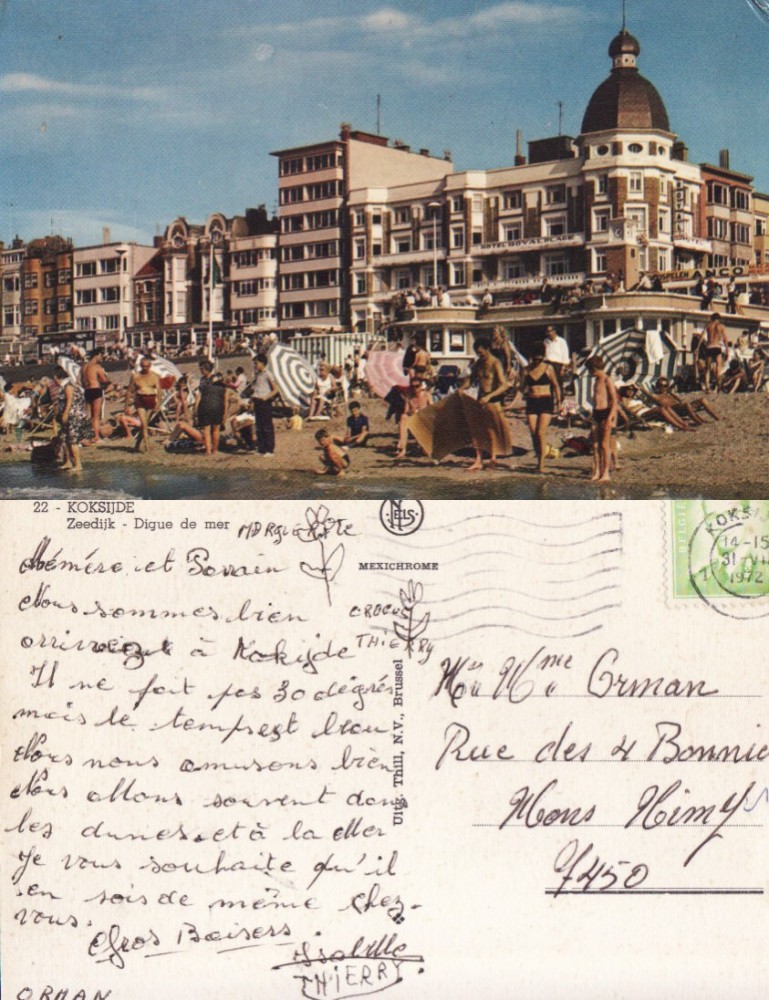 HOTEL ROYAL PLAGE
HOTEL
ANCO
22 - KOKSIJDE
Zeedijk - Digue de mer
NELS
MEXICHROME
Uitg. Thill, N.V., Brussel
BELGIE
KOKS
14-15
31 VII
1972
Mémére et Parrain
Nous sommes bien
à Kokijde
Il ne fait pas 30 dégrés
mais le temps est beau
Nous nous amusons bien
Nous allons souvent dans
les dunes et à la Mer
Je vous souhaite qu'il
en sois de même chez-
vous.
Gros Baisers.
Isabelle
THIERRY.
ORMAN
CROCUS
THIERRY
Mr Mme Orman
Rue des 4 Bonnie
Mons Nimy
7450